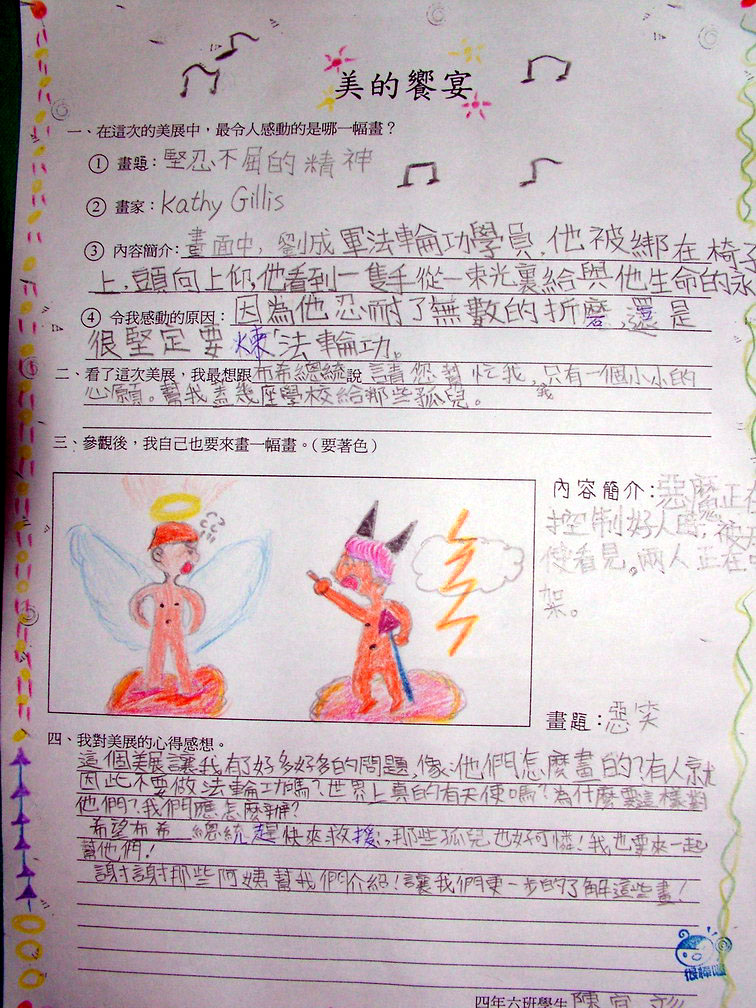 美的饗宴
一、在這次的美展中，最令人感動的是哪一幅畫？
① 畫題：堅忍不屈的精神
② 畫家：Kathy Gillis
③ 內容簡介：畫面中，劉成軍法輪功學員，他被綁在椅子
上，頭向上仰，他看到一隻手從一束光裏給與他生命的永
④ 令我感動的原因：因為他忍耐了無數的折磨，還是
很堅定要煉法輪功。
二、看了這次美展，我最想跟布希總統說 請您幫忙我，只有一個小小的
心願。幫我蓋幾座學校給那些孤兒。
三、參觀後，我自己也要來畫一幅畫。（要著色）
內容簡介：惡魔正在
控制好人時，被天
使看見，兩人正在
架。
畫題：惡笑
四、我對美展的心得感想。
這個美展讓我有了好多好多的問題，像：他們怎麼畫的？有人就
因此不要做法輪功嗎？世界上真的有天使嗎？為什麼要這樣對
他們？我們應怎麼辦？
希望布希總統趕快來救援，那些孤兒也好可憐！我也要來一起
幫他們！
謝謝那些阿姨幫我們介紹！讓我們更一步的了解這些畫！
很棒喔
四年六班學生 陳